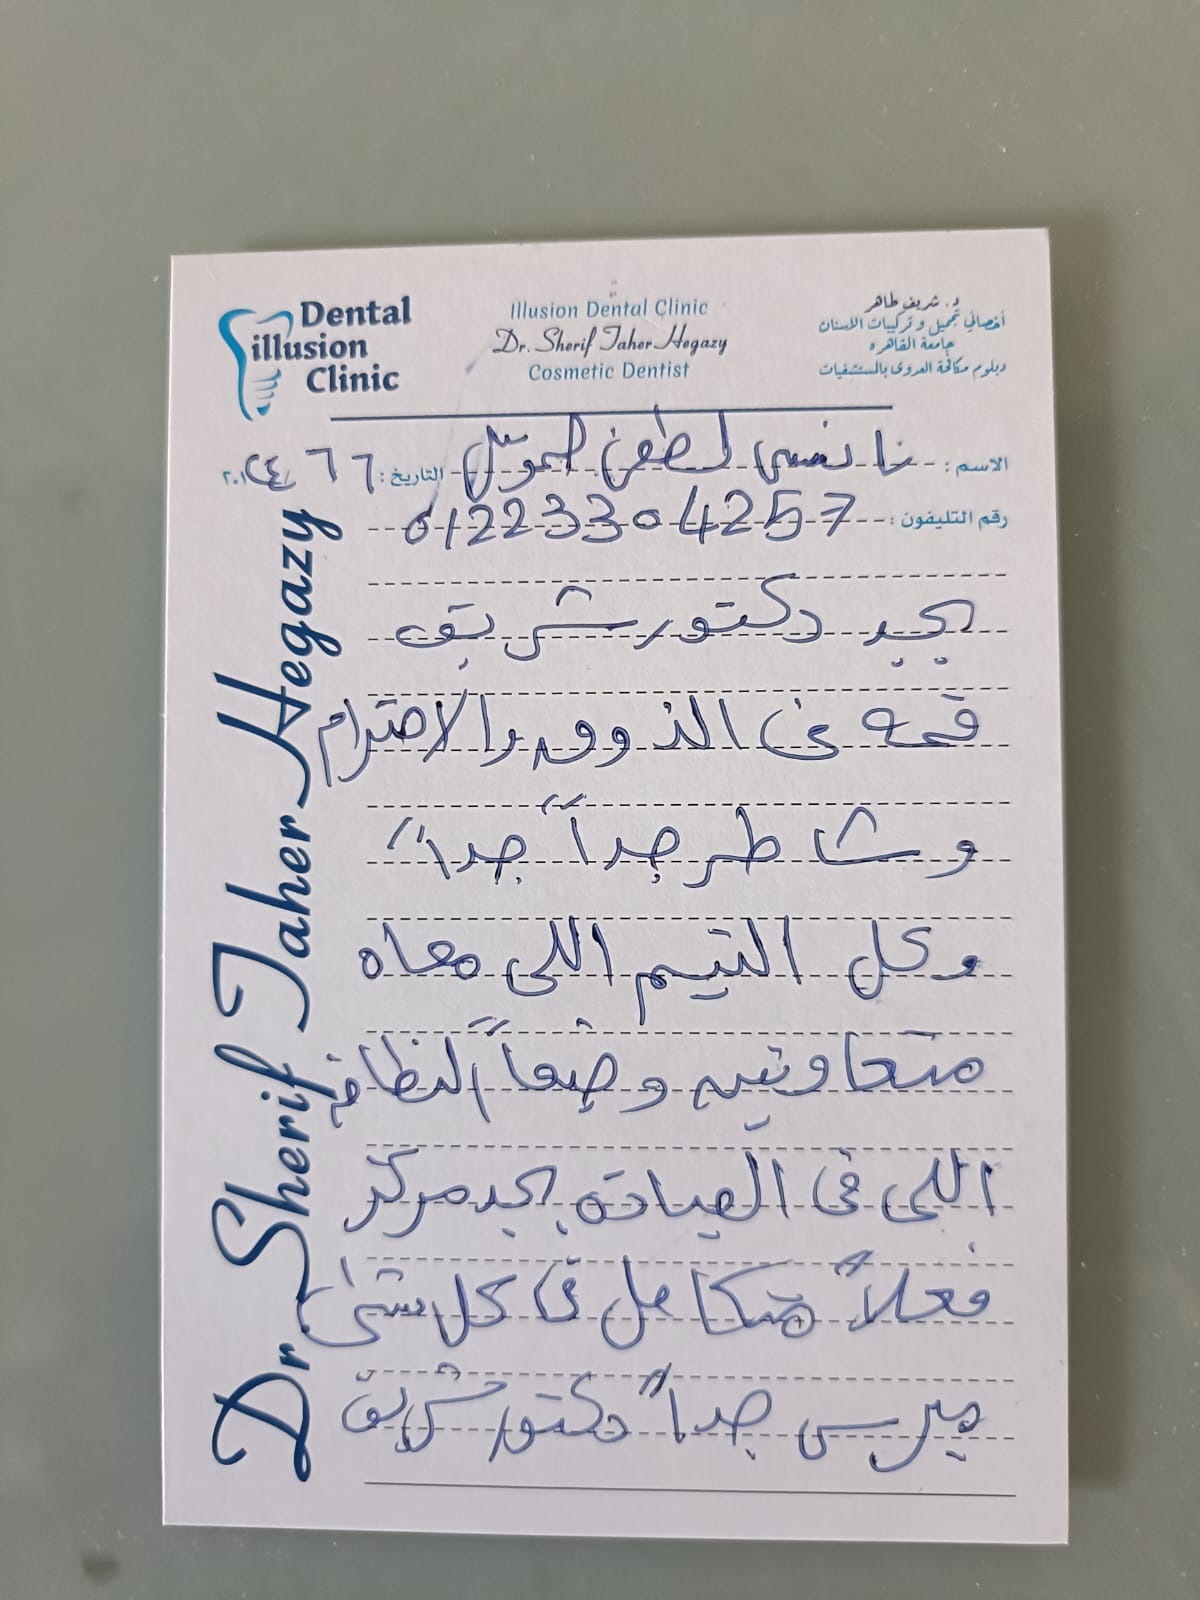 Dental
illusion
Clinic
Illusion Dental Clinic
Dr. Sherif Taher Hegazy
Cosmetic Dentist
د. شريف طاهر
أخصائي تجميل و تركيبات الاسنان
جامعة القاهره
دبلوم مكافحة العدوى بالمستشفيات
الاسم : نانسى لطفى
التاريخ :
رقم التليفون : 01223304257
بجد دكتور شريف
قمه فى الذوق والاحترام
وشاطر جداً جداً
وكل التيم اللى معاه
متعاونين وطبعاً النظافه
اللى فى العيادة بجد مركز
فعلاً متكامل فى كل شئ
ميرسى جداً دكتور شريف
Dr. Sherif Taher Hegazy